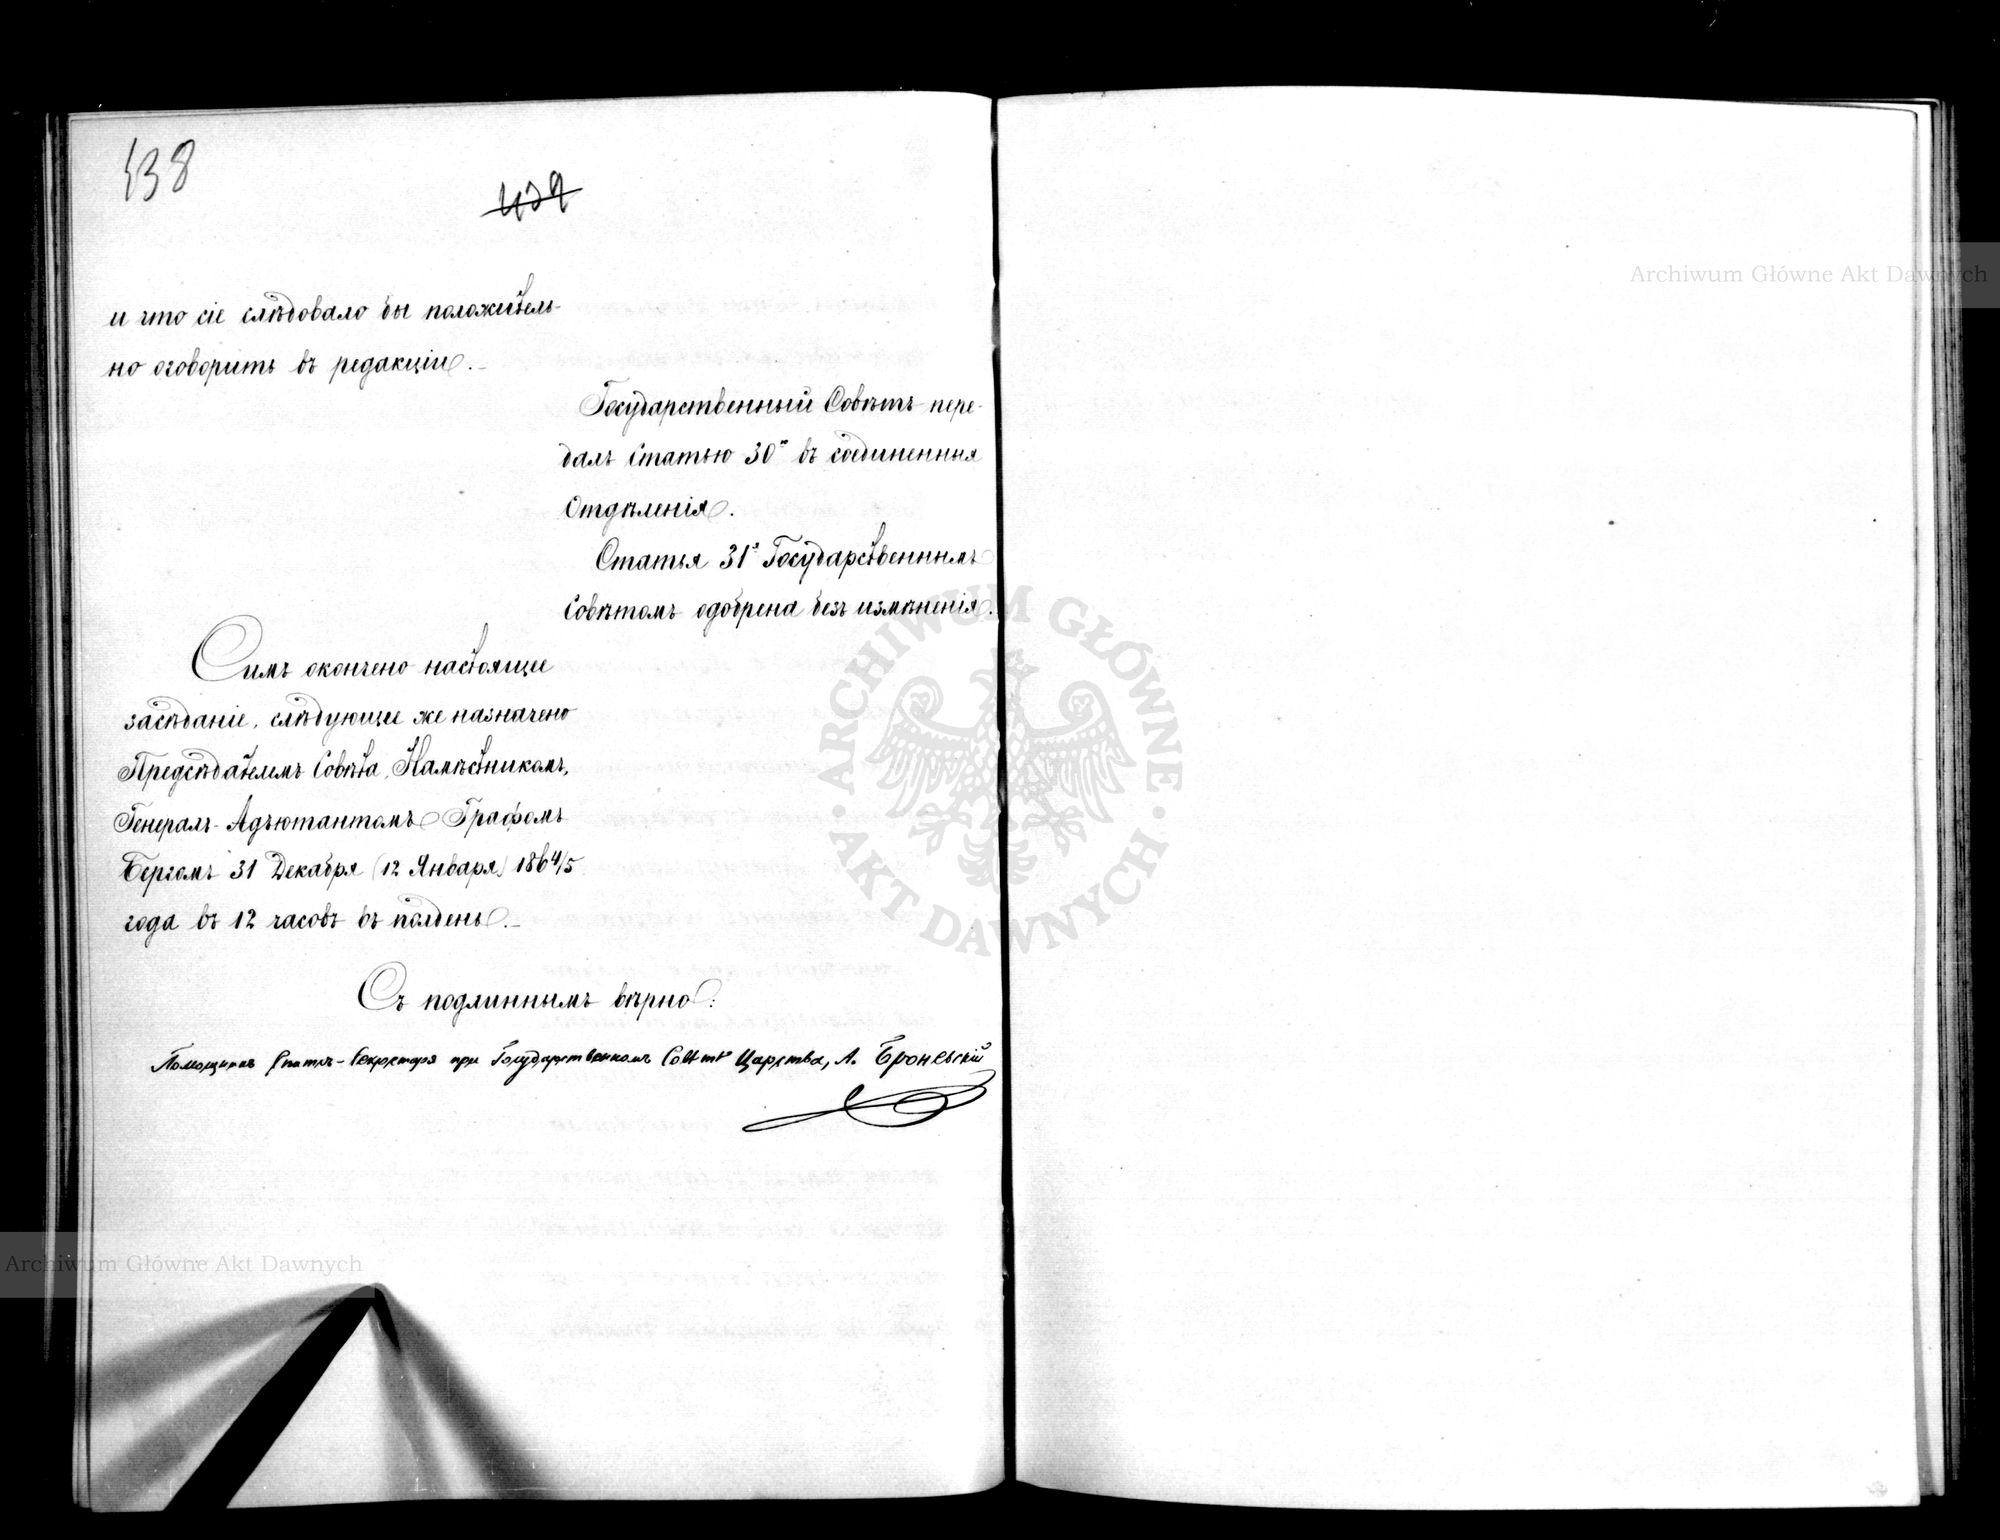 138
439
и что сіе слѣдовало бы положитель-
но оговорить въ редакціи.
Государственный Совѣтъ пере-
далъ Статью 30ю въ соединенныя
Отдѣленія.
Статья 31я Государственнымъ
Совѣтомъ одобрена безъ измѣненія.
Симъ окончено настоящее
засѣданіе, слѣдующее же назначено
Предсѣдателемъ Совѣта, Намѣстникомъ,
Генералъ-Адъютантомъ Графомъ
Бергомъ 31 Декабря (12 Января) 1864/5
года въ 12 часовъ въ полдень.
Съ подлиннымъ вѣрно:
Помощникъ Статсъ-Секретаря при Государственномъ Совѣтѣ Царства, А. Броневскій
Archiwum Główne Akt Dawnych
ARCHIWUM GŁÓWNE AKT DAWNYCH
Archiwum Główne Akt Dawnych